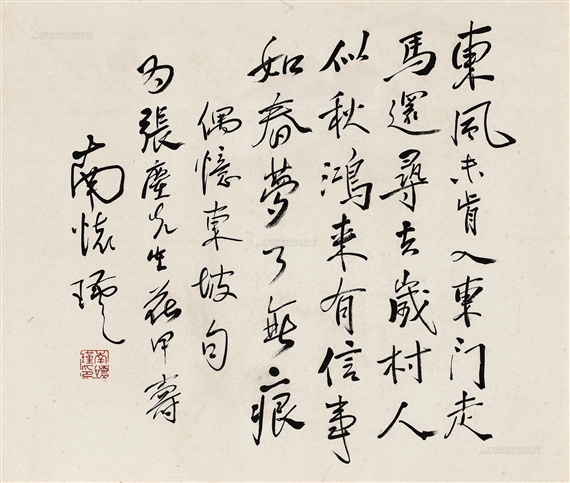 東風未肯入東门走
馬還尋去歲村人
似秋鴻来有信事
如春夢了無痕
偶憶東坡句
为張塵先生花甲壽
南懷瑾